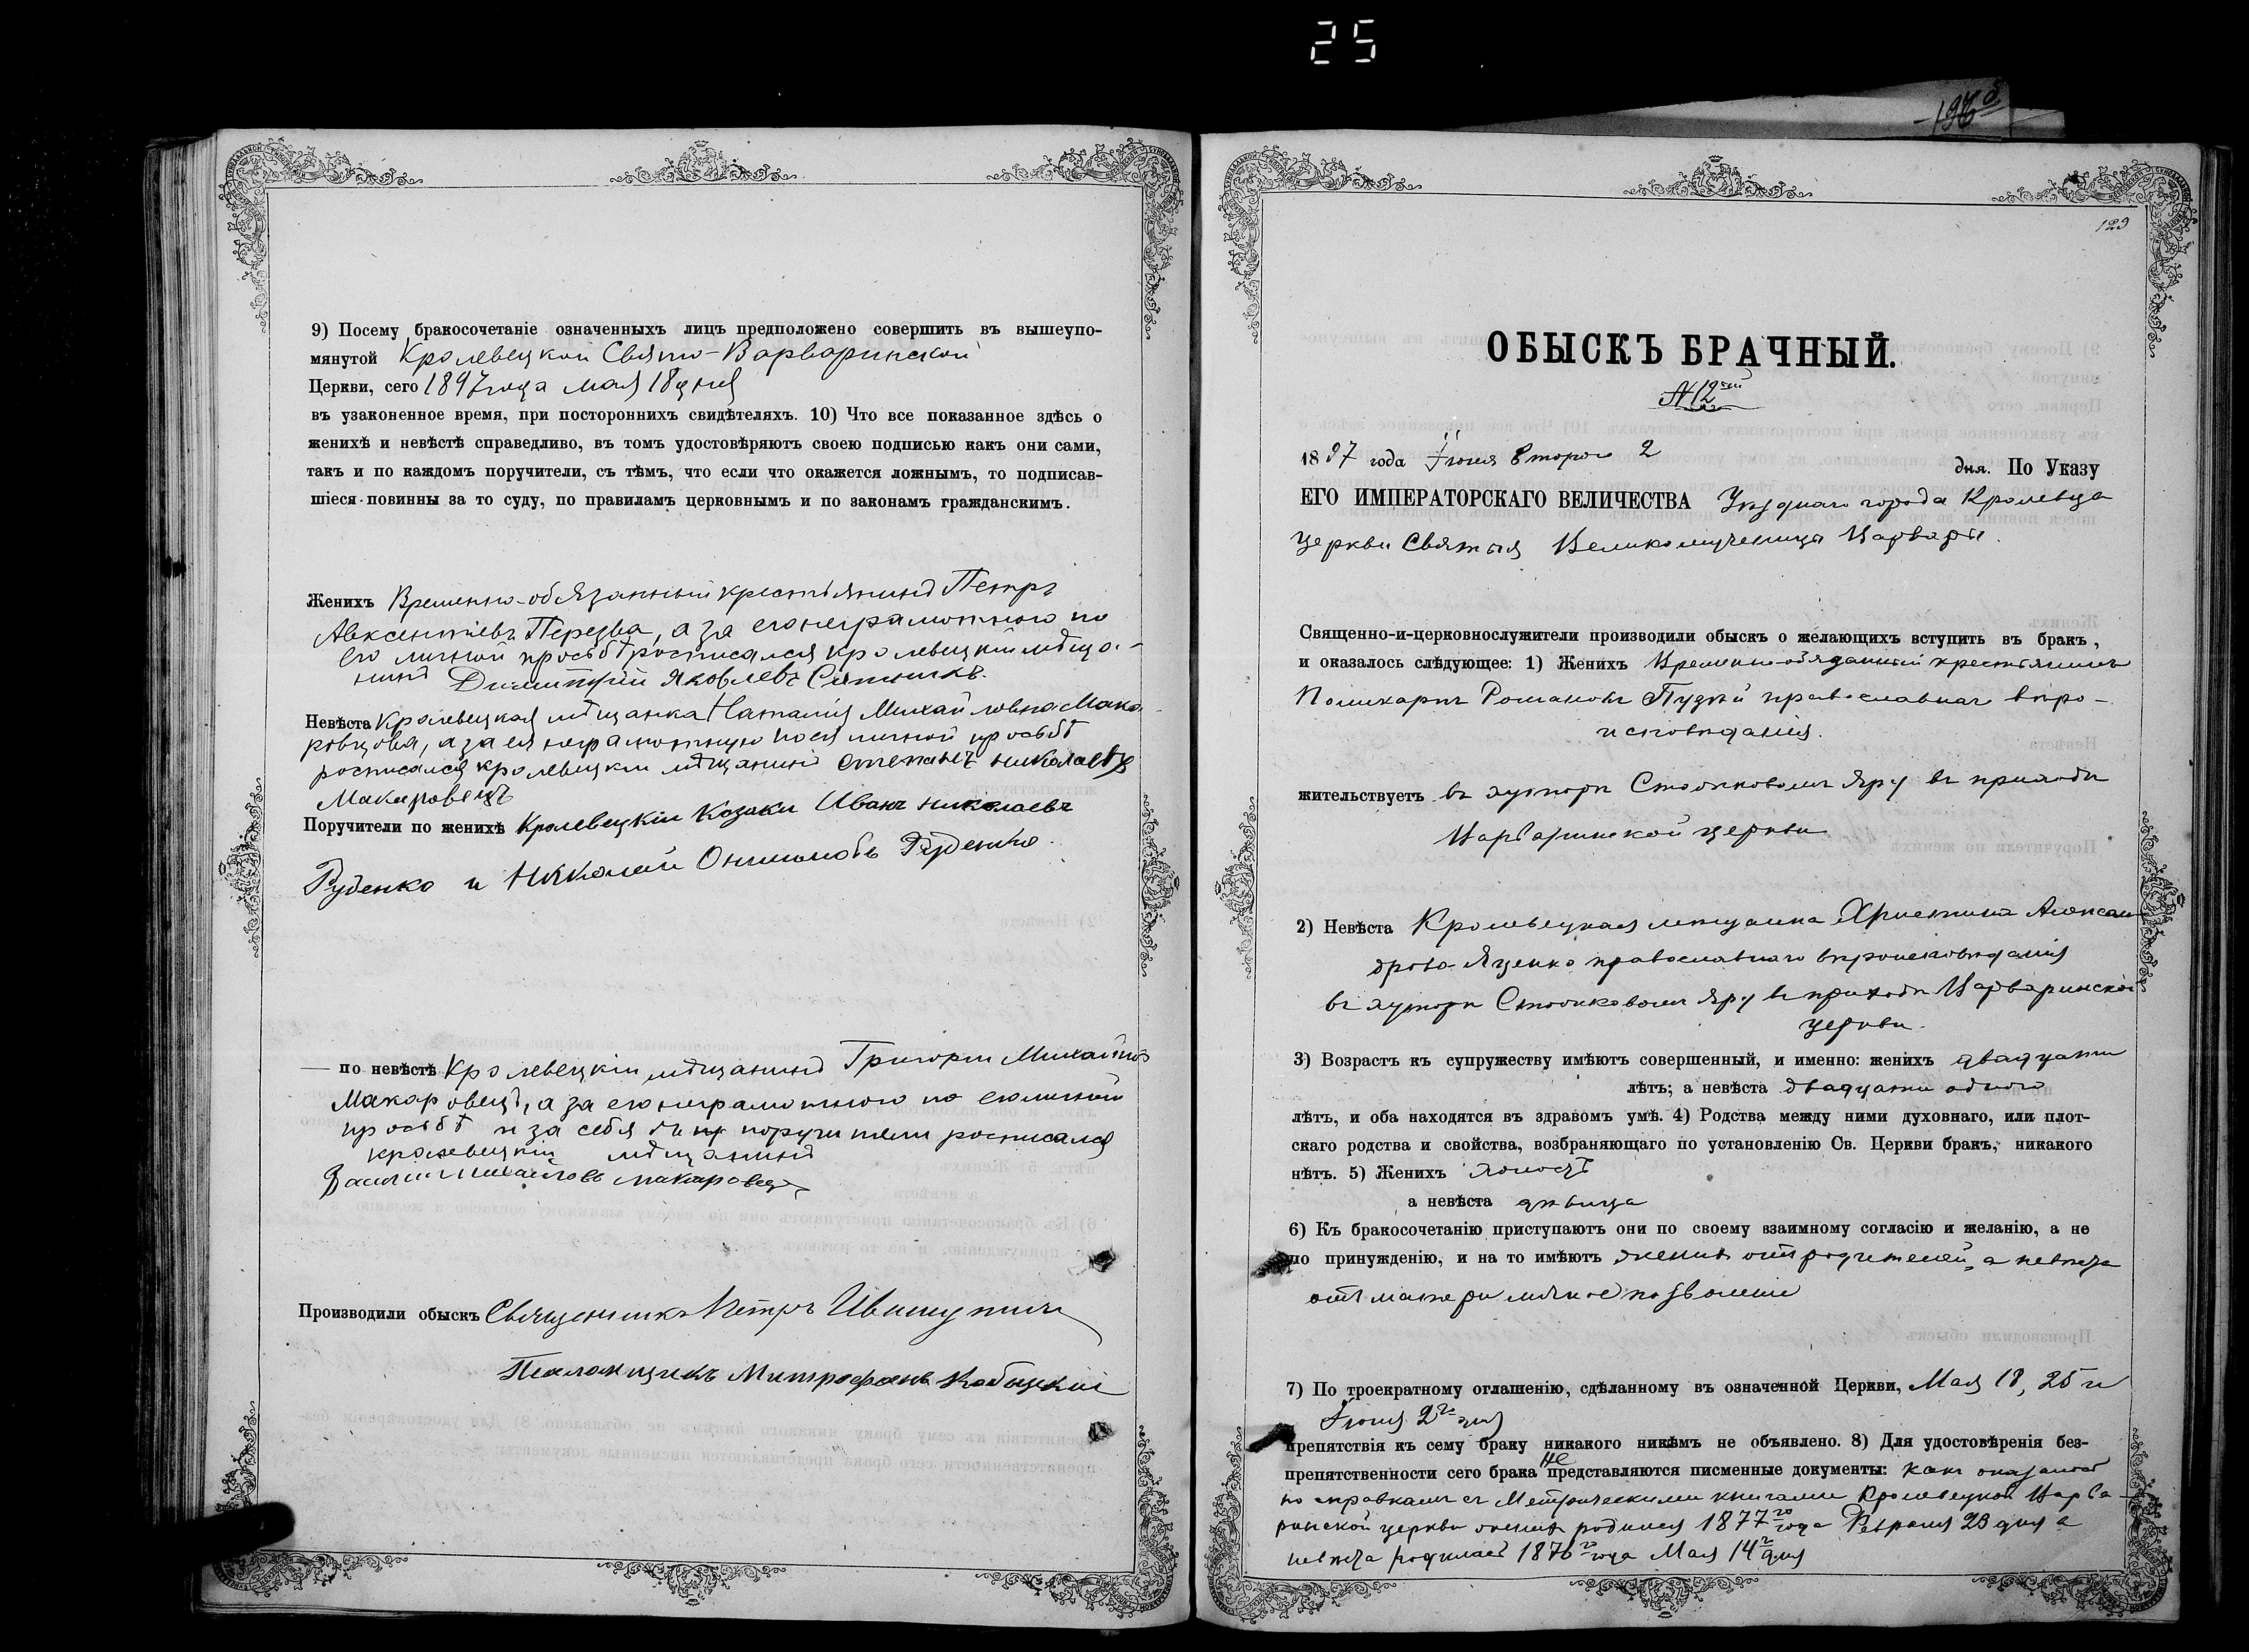 25
9) Посему бракосочетаніе означенныхъ лицъ предположено совершить въ вышеупо-
мянутой Кролевецкой Свято-Варваринской
Церкви, сего 1897 года мая 18 дня
въ узаконенное время, при постороннихъ свидѣтеляхъ. 10) Что все показанное здѣсь о
женихѣ и невѣстѣ справедливо, въ томъ удостовѣряютъ своею подписью какъ они сами,
такъ и по каждомъ поручители, съ тѣмъ, что если что окажется ложнымъ, то подписав-
шіеся повинны за то суду, по правиламъ церковнымъ и по законамъ гражданскимъ.
Женихъ Временно-обязанный крестьянинъ Петръ
Авксентіевъ Перезва, а за его неграмотного по
его личной просьбѣ росписался кролевецкій мѣща-
нинъ Димитрій Яковлевъ Ситникъ.
Невѣста Кролевецкая мѣщанка Наталія Михайловна Мака
ровцова, а за ея неграмотную по ея личной просьбѣ
росписался кролевецкій мѣщанинъ Степанъ Николаевъ
Макаровецъ
Поручители по женихѣ Кролевецкіи Козаки Иванъ Николаевъ
Руденко и Николай Онисимовъ Руденко.
— по невѣстѣ Кролевецкій мѣщанинъ Григорій Михайловъ
Макаровецъ, а за его неграмотного по его личной
просьбѣ и за себя поручители росписался
кролевецкій мѣщанинъ
Василій Михайловъ Макаровецъ
Производили обыскъ Священникъ Петръ
Псаломщикъ Митрофанъ
129
ОБЫСКЪ БРАЧНЫЙ.
№ 12й
1897 года Іюня второго 2 дня. По Указу
ЕГО ИМПЕРАТОРСКАГО ВЕЛИЧЕСТВА Уѣзднаго города Кролевца
церкви Святыя Великомученицы Варвары.
Священно-и-церковнослужители производили обыскъ о желающихъ вступить въ бракъ,
и оказалось слѣдующее: 1) Женихъ Временнообязанный крестьянинъ
Поликарпъ Романовъ Пузий православнаг вѣро-
исповѣданія.
жительствуетъ въ хуторѣ Яру въ приходѣ
Варваринской церкви
2) Невѣста Кролевецкая мѣщанка Христина Алексан
дрова Яценко православнаго вѣроисповѣданія
въ хуторѣ Яру въ приходѣ Варваринской
церкви.
3) Возрастъ къ супружеству имѣютъ совершенный, и именно: женихъ двадцати
лѣтъ; а невѣста двадцати одного
лѣтъ, и оба находятся въ здравомъ умѣ. 4) Родства между ними духовнаго, или плот-
скаго родства и свойства, возбраняющаго по установленію Св. Церкви бракъ, никакого
нѣтъ. 5) Женихъ холостъ
а невѣста дѣвица
6) Къ бракосочетанію приступаютъ они по своему взаимному согласію и желанію, а не
по принужденію, и на то имѣютъ женихъ отъ родителей, а невѣста
отъ матери личное позволеніе
7) По троекратному оглашенію, сдѣланному въ означенной Церкви, Мая 18, 25 и
Іюня 2го дня
препятствія къ сему браку никакого никѣмъ не объявлено. 8) Для удостовѣренія без-
препятственности сего брака не представляются писменные документы: какъ оказалось
по справкамъ съ Метрическими книгами Кролевецкой Варва-
ринской церкви женихъ родился 1877го года Февраля 23 дня а
невѣста родилась 1876го года Мая 14го дня